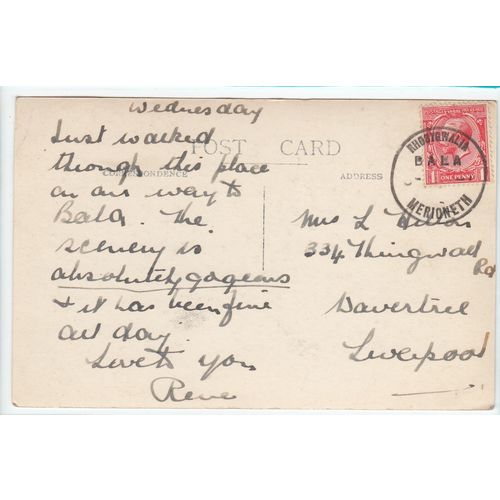 Wednesday
Just walked
through this place
on our way to
Bala. The
scenery is
absolutely gogeous
& it has been fine
all day.
Love to you
Rene
POST CARD
CORRESPONDENCE
ADDRESS
RHOSYGWALIA
BALA
MERIONETH
ONE PENNY
Mrs L Hilton
334 Thingwall
Rd
Wavertree
Liverpool